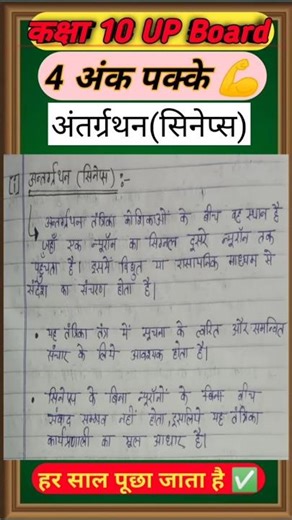 कक्षा 10 UP Board
4 अंक पक्के 💪
अंतर्ग्रथन(सिनेप्स)
(1) अन्तर्ग्रथन (सिनेप्स) :-
अन्तर्ग्रथना तंत्रिका कोशिकाओं के बीच वह स्थान है
जहाँ एक न्यूरॉन का सिग्नल दूसरे न्यूरॉन तक
पहुचता है। इसमें विद्युत या रासायनिक माध्यम से
संदेश का संचरण होता है।
• यह तंत्रिका तंत्र में सूचना के त्वरित और समन्वित
संचार के लिये आवश्यक होता है।
• सिनेप्स के बिना न्यूरॉनों के बिना बीच
संवाद सम्भव नहीं होता, इसलिये यह तंत्रिका
कार्यप्रणाली का मूल आधार है।
हर साल पूछा जाता है ✅